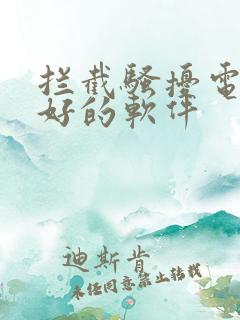 拦截騷擾電
好的軟件
迪斯肯
未经同意禁止转载